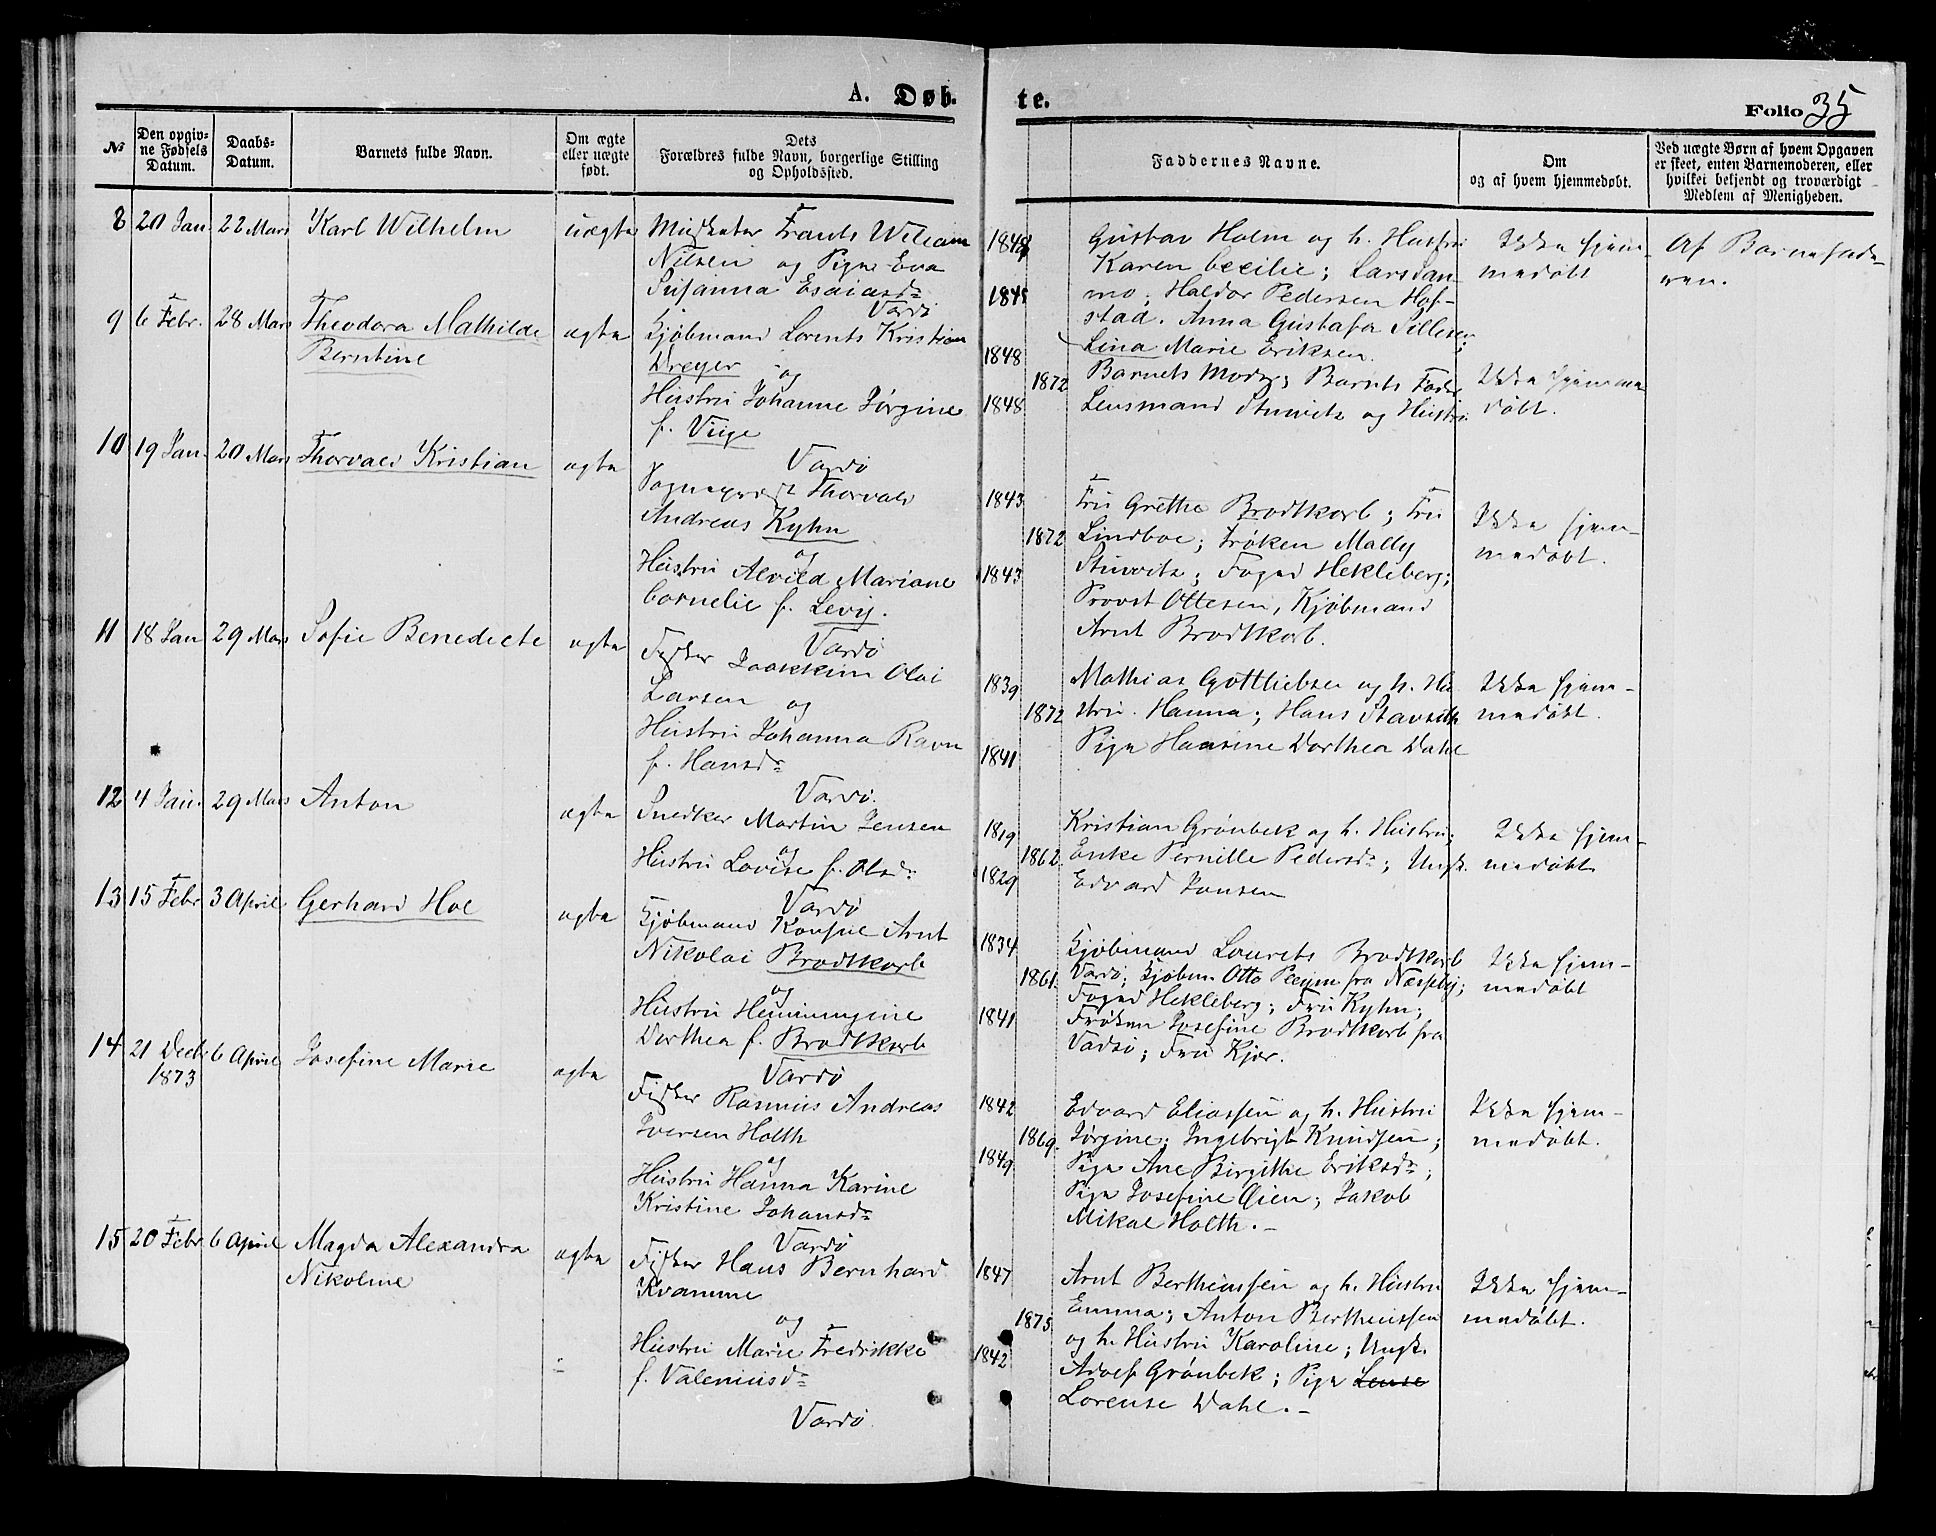 A. Døb-
te.
Folio 35
№
Den opgiv-
ne Fødsels
Datum.
Daabs-
Datum.
Barnets fulde Navn.
Om ægte
eller uægte
født.
Dets
Forældres fulde Navn, borgerlige Stilling
og Opholdssted.
Faddernes Navne.
Om
og af hvem hjemmedøbt.
Ved uægte Børn af hvem Opgaven
er skeet, enten Barnemoderen, eller
hvilket bekjendt og troværdigt
Medlem af Menigheden.
8 20 Jan. 22 Mars Karl Wilhelm uægte
Frants Wiliam
Nilsen og Pige Eva
Susanna Esaiasdr
Vardø
1848
1845
Gustav Holm og h. Hustru
Karen Cecilie; Lars San-
mo; Haldor Pedersen Hof-
stad. Anna Gustafa Sillesen;
Lina Marie Eriksen.
Ikke hjem-
medøbt
Af Barnefade-
ren.
9 6 Febr. 28 Mars Theodora Mathilde
Berntine
ægte
Kjøbmand Lorents Kristian
Dreyer og
Hustru Johanne Jørgine
f. Viige
Vardø
1848
1872
1848
Barnets Moder; Barnets Fader
Lensmand Stuwitz og Hustru
Ikke hjemme
døbt.
10 19 Jan. 20 Mars Thorvald Kristian ægte
Sognepræst Thorvald
Andreas Kyhn
og
Hustru Alvild Mariane
Cornelie f. Levy.
Vardø
1843
1872
1843
Fru Grethe Brodtkorb; Fru
Lindboe; Frøken Mally
Stuwitz; Foged Hekleberg;
Provst Ottesen, Kjøbmand
Arnt Brodtkorb.
Ikke hjem-
medøbt.
11 18 Jan 29 Mars Sofie Benedicte ægte
Fisker Joakkim Olai
Larsen og
Hustru Johanna Ravn
f. Hansdr
Vardø.
1839
1872
1841
Mathias Gottliebsen og h. Hu
stru Hanna; Hans
Pige Haasine Dorthea Dahl
Ikke hjem-
medøbt.
12 4 Jan. 29 Mars Anton ægte
Snedker Martin Jensen
og
Hustru Lovise f. Olsdr
Vardø
1819
1862
1829
Kristian Grønbek og h. Hustru;
Enke Pernille Pedersdr; Ungk.
Edvard Jensen
Ikke hjem-
medøbt
13 15 Febr 3 April Gerhard Hoe ægte
Kjøbmand Konsul Arnt
Nikolai Brodtkorb
og
Hustru Hemmingine
Dorthea f. Brodtkorb
Vardø
1834
1861.
1841
Kjøbmand Laurets Brodtkorb
Vardø; Kjøbm. Otto fra Næsseby;
Foged Hekleberg; Fru Kyhn;
Frøken Josefine Brodtkorb fra
Vadsø; Fru Kjær.
Ikke hjem-
medøbt
14 21 Decb 6 April Josefine Marie ægte
1873
Fisker Rasmus Andreas
Iversen Holth
og
Hustru Hanna Karine
Kristine Johansdr
Vardø
1842
1869.
1849
Edvard Eliassen og h. Hustru
Jørgine; Ingebrigt Knudsen;
Pige Ane Birgithe Eriksdr;
Pige Josefine Øien; Jakob
Mikal Holth.-
Ikke hjem-
medøbt.
15 20 Febr 6 April Magda Alexandra
Nikoline
ægte
Fisker Hans Bernhard
Kvamme
og
Hustru Marie Fredrikke
f. Valeniusdr
Vardø
1847
1875
1842
Arnt Bertheussen og h. Hustru
Emma; Anton Bertheussen
og h. Hustru Karoline; Ungk.
Adolf Grønbek; Pige
Lorense Dahl.-
Ikke hjem-
medøbt.